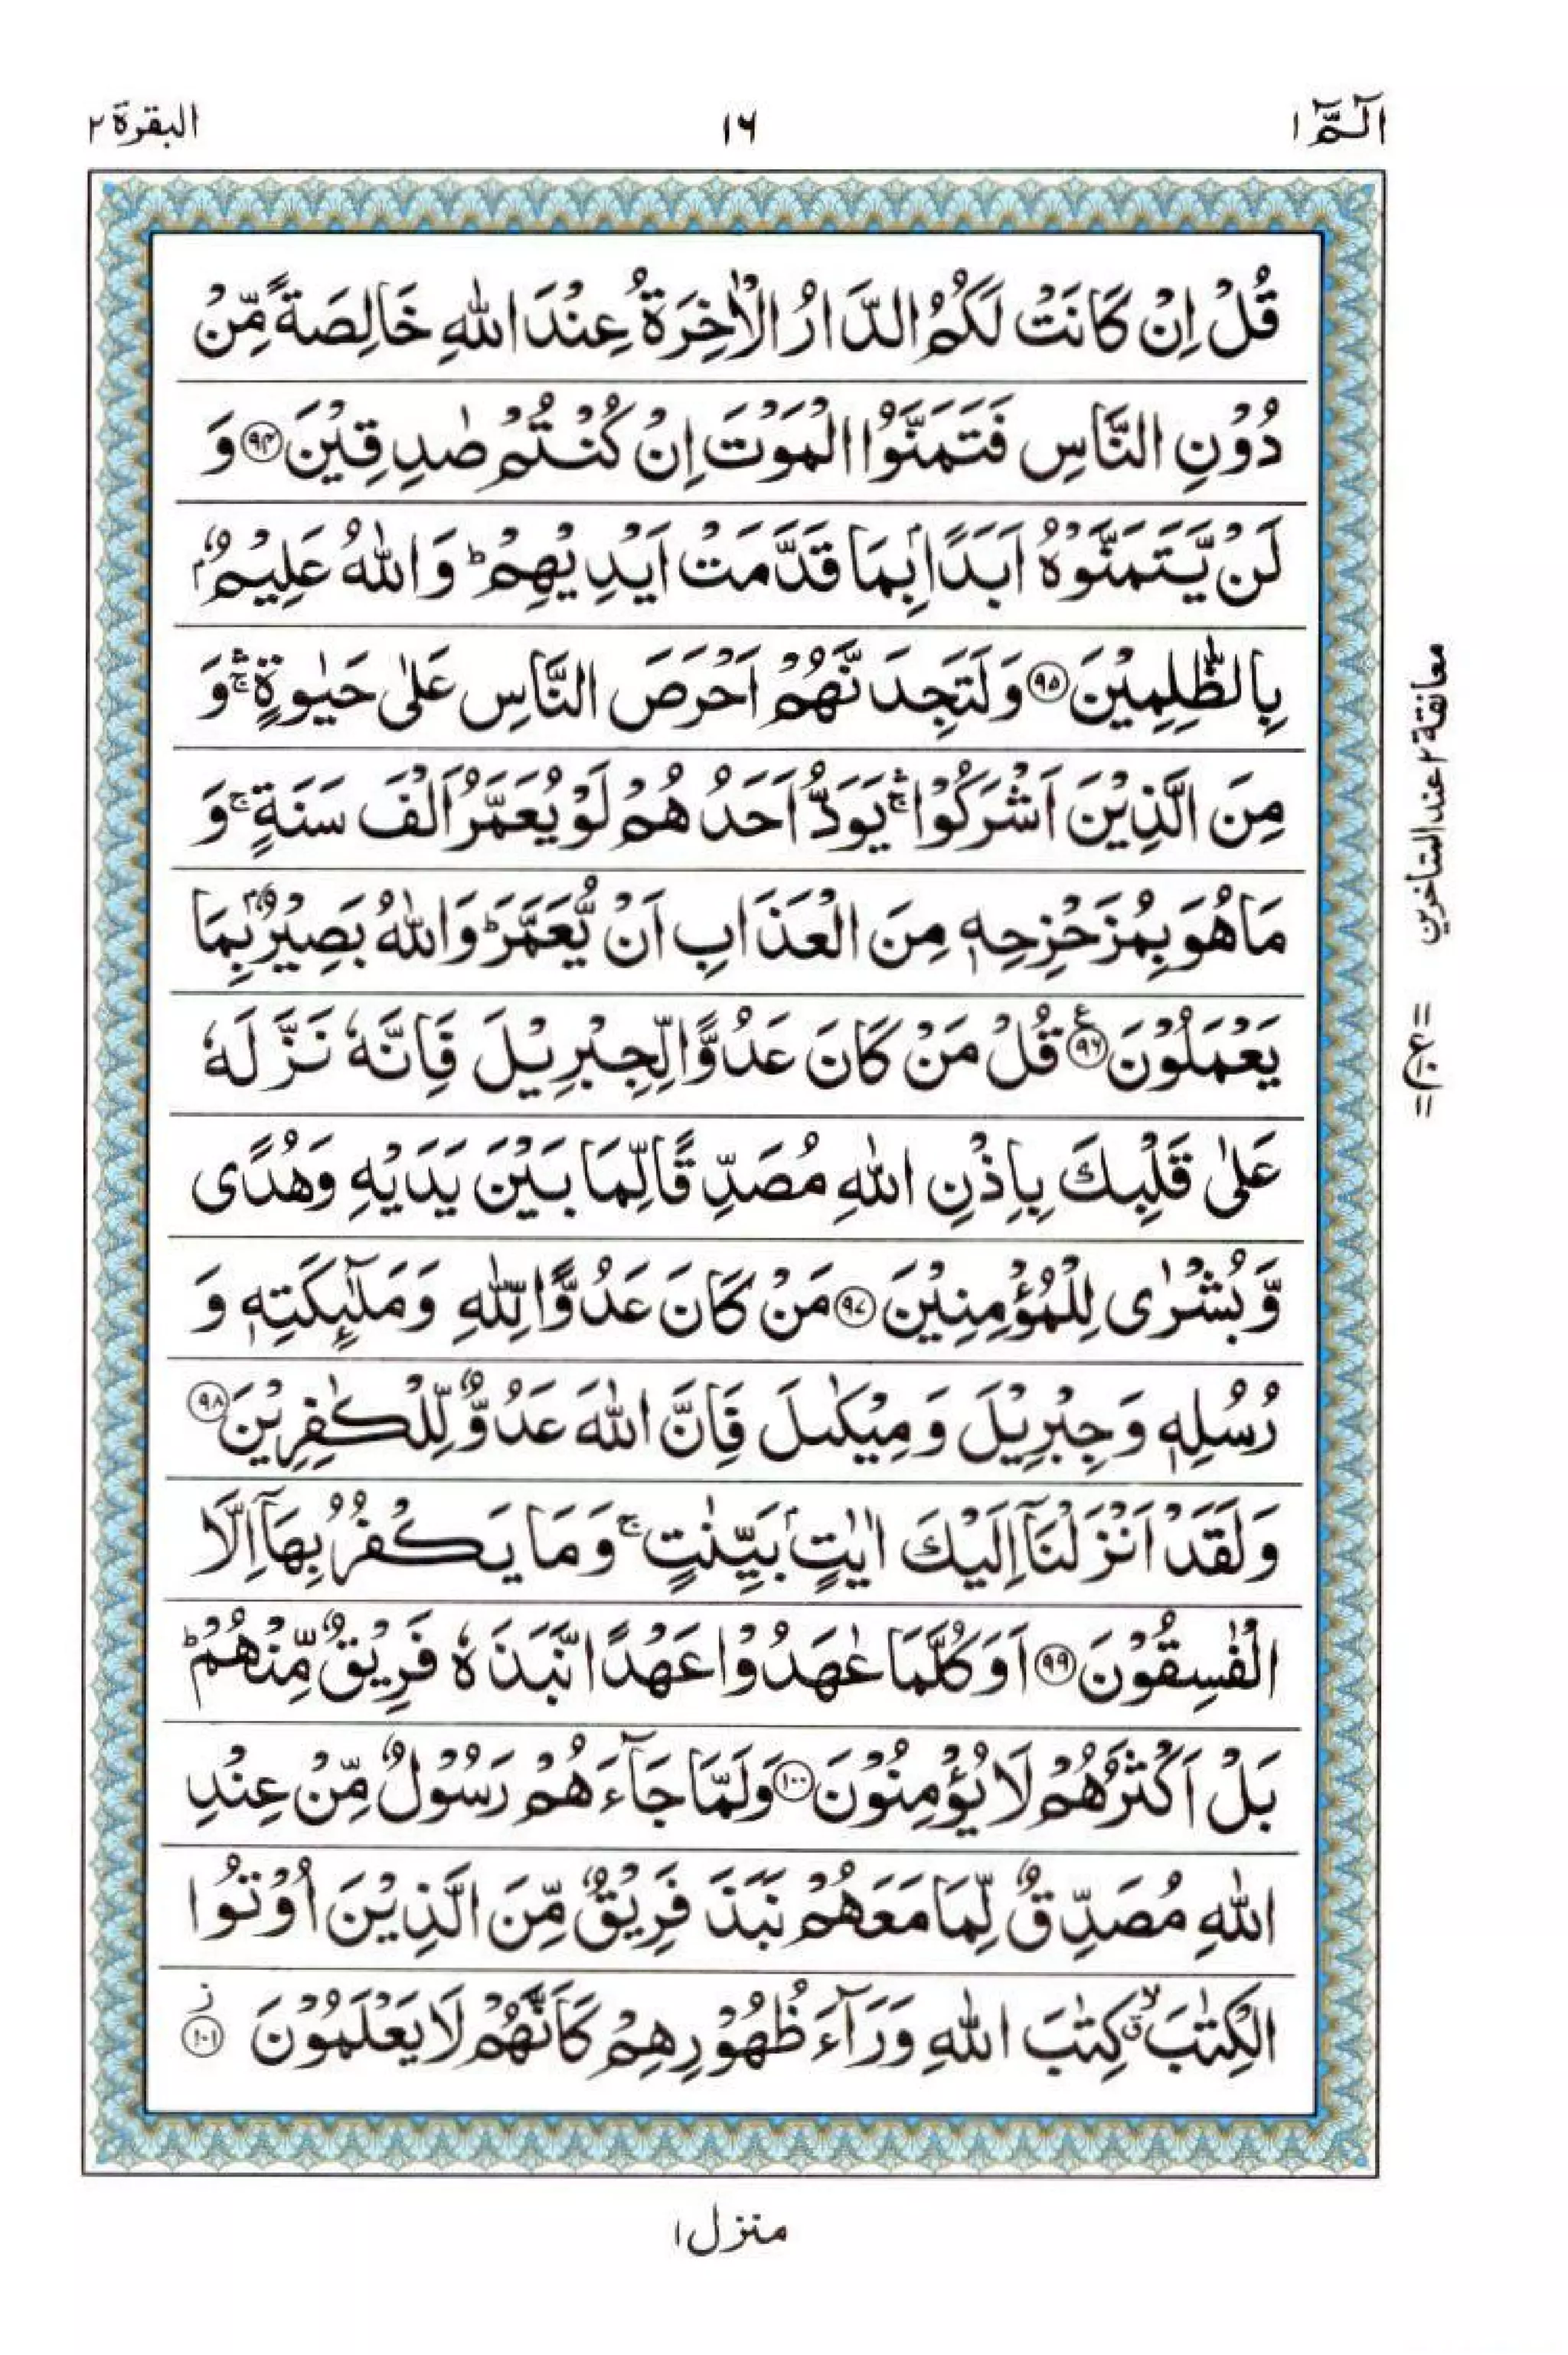 الٓمّٓ ١
١٦
البقرة ٢
قُلْ اِنْ كَانَتْ لَكُمُ الدَّارُ الْاٰخِرَةُ عِنْدَ اللّٰهِ خَالِصَةً مِّنْ
دُوْنِ النَّاسِ فَتَمَنَّوُا الْمَوْتَ اِنْ كُنْتُمْ صٰدِقِيْنَ ﴿۹۴﴾ وَ
لَنْ يَّتَمَنَّوْهُ اَبَدًۢا بِمَا قَدَّمَتْ اَيْدِيْهِمْ ؕ وَاللّٰهُ عَلِيْمٌۢ
بِالظّٰلِمِيْنَ ﴿۹۵﴾ وَلَتَجِدَنَّهُمْ اَحْرَصَ النَّاسِ عَلٰى حَيٰوةٍ ۛۚ وَ
مِنَ الَّذِيْنَ اَشْرَكُوْا ۛۚ يَوَدُّ اَحَدُهُمْ لَوْ يُعَمَّرُ اَلْفَ سَنَةٍ ۚ وَ
مَا هُوَ بِمُزَحْزِحِهٖ مِنَ الْعَذَابِ اَنْ يُّعَمَّرَ ؕ وَاللّٰهُ بَصِيْرٌۢ بِمَا
يَعْمَلُوْنَ ﴿۹۶﴾ ع قُلْ مَنْ كَانَ عَدُوًّا لِّجِبْرِيْلَ فَاِنَّهٗ نَزَّلَهٗ
عَلٰى قَلْبِكَ بِاِذْنِ اللّٰهِ مُصَدِّقًا لِّمَا بَيْنَ يَدَيْهِ وَهُدًى
وَّبُشْرٰى لِلْمُؤْمِنِيْنَ ﴿۹۷﴾ مَنْ كَانَ عَدُوًّا لِّلّٰهِ وَمَلٰٓئِكَتِهٖ وَ
رُسُلِهٖ وَجِبْرِيْلَ وَمِيْكٰىلَ فَاِنَّ اللّٰهَ عَدُوٌّ لِّلْكٰفِرِيْنَ ﴿۹۸﴾
وَلَقَدْ اَنْزَلْنَآ اِلَيْكَ اٰيٰتٍۭ بَيِّنٰتٍ ۚ وَمَا يَكْفُرُ بِهَآ اِلَّا
الْفٰسِقُوْنَ ﴿۹۹﴾ اَوَكُلَّمَا عٰهَدُوْا عَهْدًا نَّبَذَهٗ فَرِيْقٌ مِّنْهُمْ ؕ
بَلْ اَكْثَرُهُمْ لَا يُؤْمِنُوْنَ ﴿۱۰۰﴾ وَلَمَّا جَآءَهُمْ رَسُوْلٌ مِّنْ عِنْدِ
اللّٰهِ مُصَدِّقٌ لِّمَا مَعَهُمْ نَبَذَ فَرِيْقٌ مِّنَ الَّذِيْنَ اُوْتُوا
الْكِتٰبَ ۙۗ كِتٰبَ اللّٰهِ وَرَآءَ ظُهُوْرِهِمْ كَاَنَّهُمْ لَا يَعْلَمُوْنَ ﴿۱۰۱﴾ ز
معانقة ٢ عند المتاخرين
منزل ١